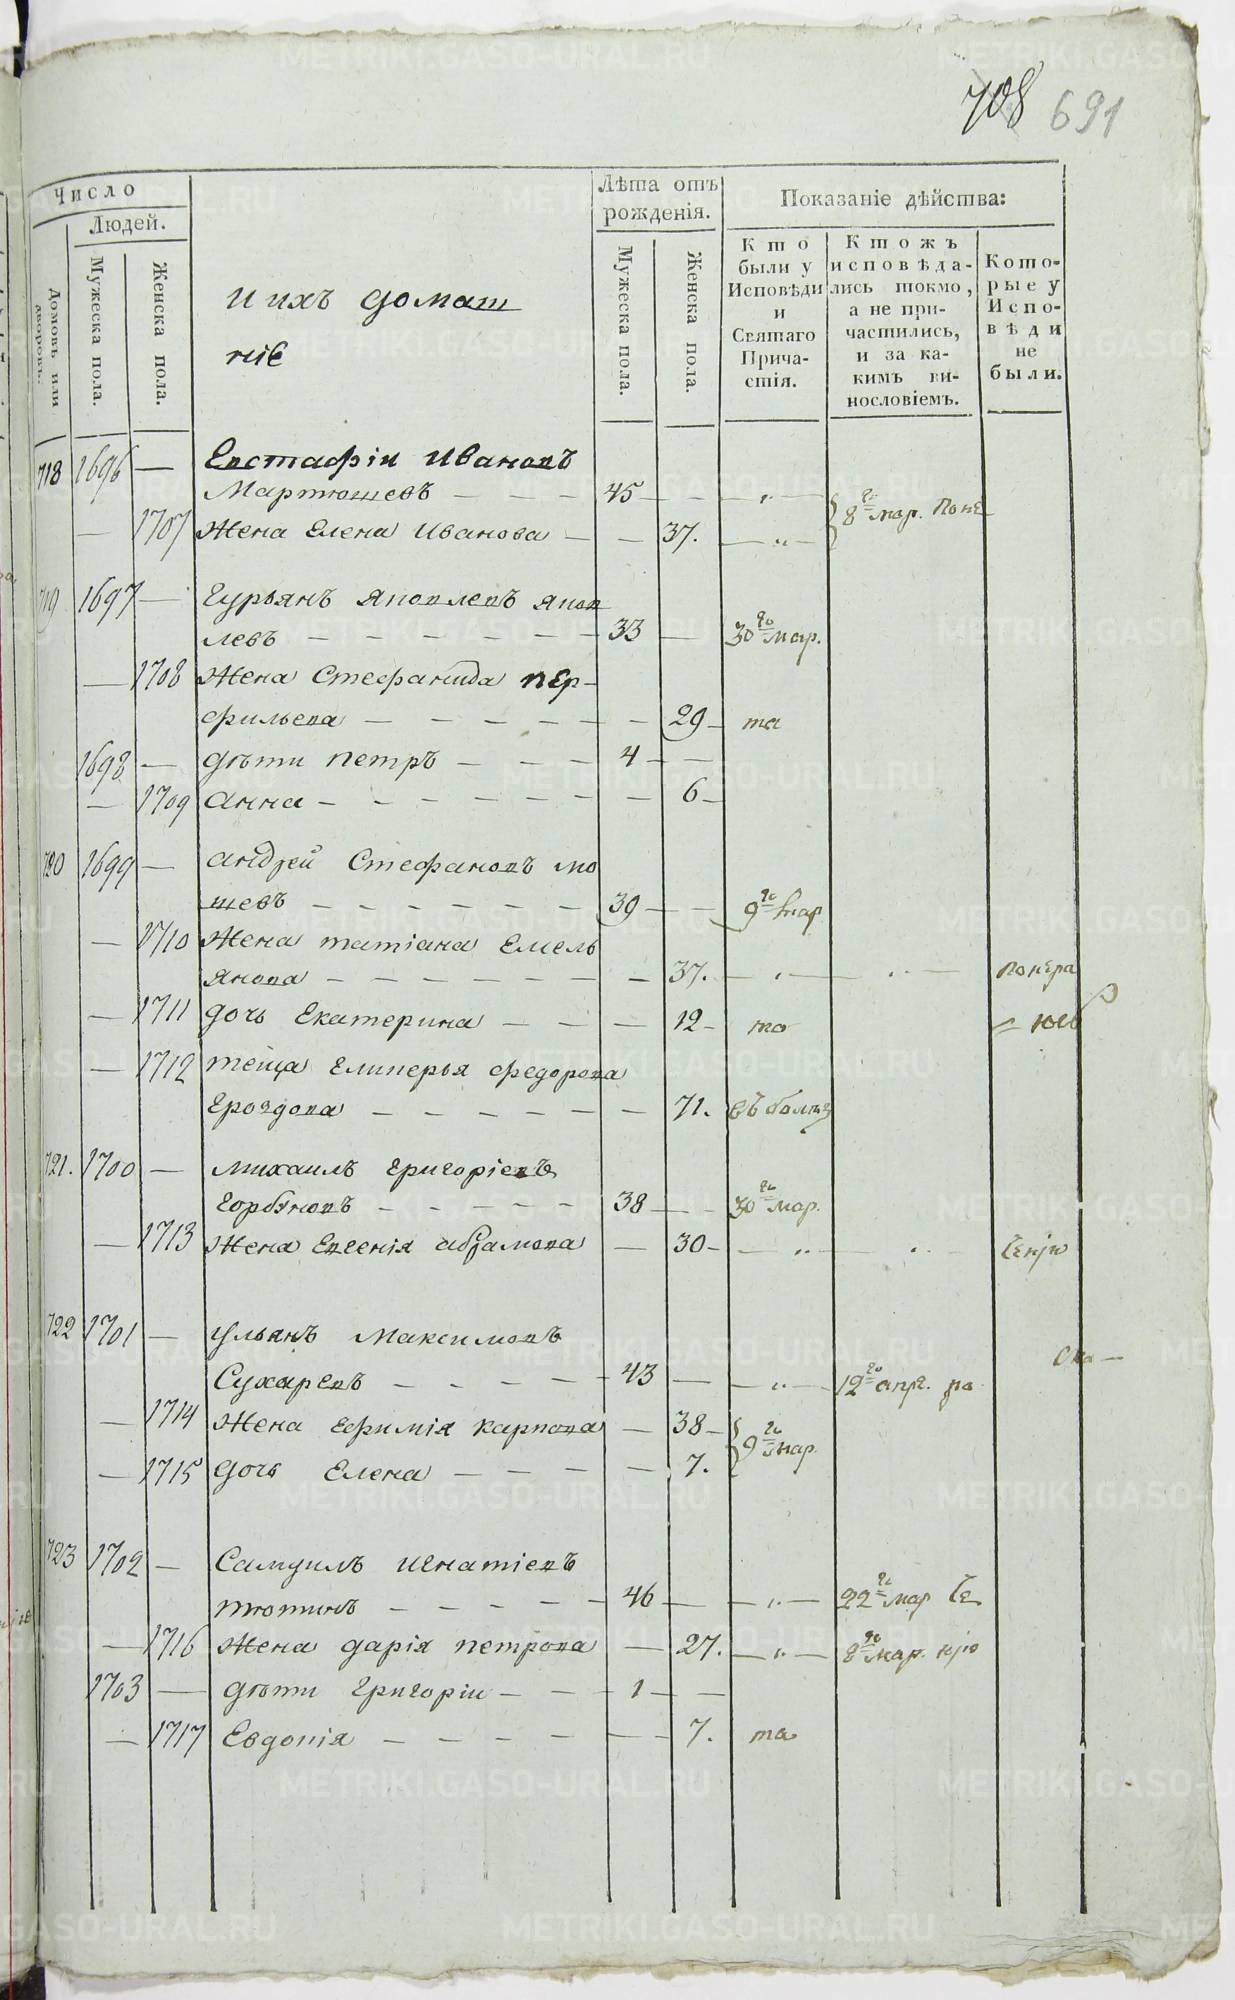 708 691
Число
Людей.
Домовъ или дворовъ.
Мужеска пола.
Женска пола.
и ихъ домаш
ніе
Лѣта отъ рожденія.
Мужеска пола.
Женска пола.
Показаніе дѣйства:
Кто были у Исповѣди и Святаго Причастія.
Ктожъ исповѣдались токмо, а не причастились, и за какимъ винословіемъ.
Которые у Исповѣди не были.
718 1696 — Евстафіи Ивановъ
Мартюшевъ — — — 45 — — — „ —
8го мар.
— 1707 Жена Елена Иванова — — 37. — „ —
719 1697 — Гурьянъ Яковлевъ Яков
левъ — — — — — — 33 — 30го мар.
— 1708 Жена Стефанида пер-
фильева — — — — — — 29 — та
1698 — дѣти Петръ — — — 4 — —
— 1709 Анна — — — — — — — 6 —
720 1699 — Андрей Стефановъ мо
шевъ — — — — — — 39 — — 9го мар
— 1710 Жена татіана Емель
янова — — — — — — 37. — „ — „ —
— 1711 дочь Екатерина — — — 12 — то
— 1712 теща Еликерья федорова
Гроздова — — — — — — 71.
721. 1700 — Михаилъ Григоріевъ
Горбуновъ — — — — — 38 — — 30го мар.
— 1713 Жена Евгенія Абрамова — 30 — — „ — „ —
722 1701 — Ульянъ Максимовъ
Сухаревъ — — — — — 43 — — „ — 12го апр.
— 1714 Жена Ефимія Карпова — 38 —
9го мар.
— 1715 дочь Елена — — — — — 7.
723 1702 — Самуилъ Игнатіевъ
тютинъ — — — — — 46 — — „ — 22го мар
— 1716 Жена дарія петрова — 27. — „ — 8го мар.
1703 — дѣти Григоріи — — — 1 — —
— 1717 Евдокія — — — — — — 7. та
METRIKI.GASO-URAL.RU